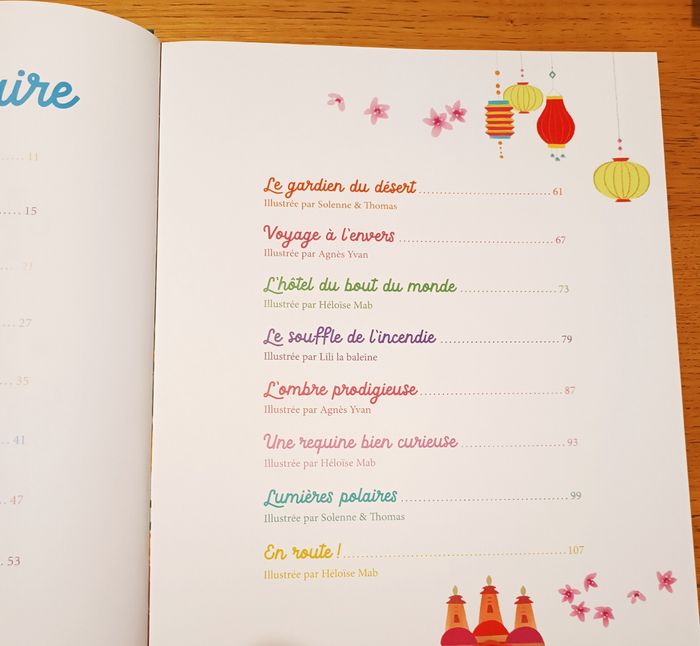 11
15
21
27
35
41
47
53
Le gardien du désert 61
Illustrée par Solenne & Thomas
Voyage à l'envers 67
Illustrée par Agnès Yvan
L'hôtel du bout du monde 73
Illustrée par Héloïse Mab
Le souffle de l'incendie 79
Illustrée par Lili la baleine
L'ombre prodigieuse 87
Illustrée par Agnès Yvan
Une requine bien curieuse 93
Illustrée par Héloïse Mab
Lumières polaires 99
Illustrée par Solenne & Thomas
En route ! 107
Illustrée par Héloïse Mab